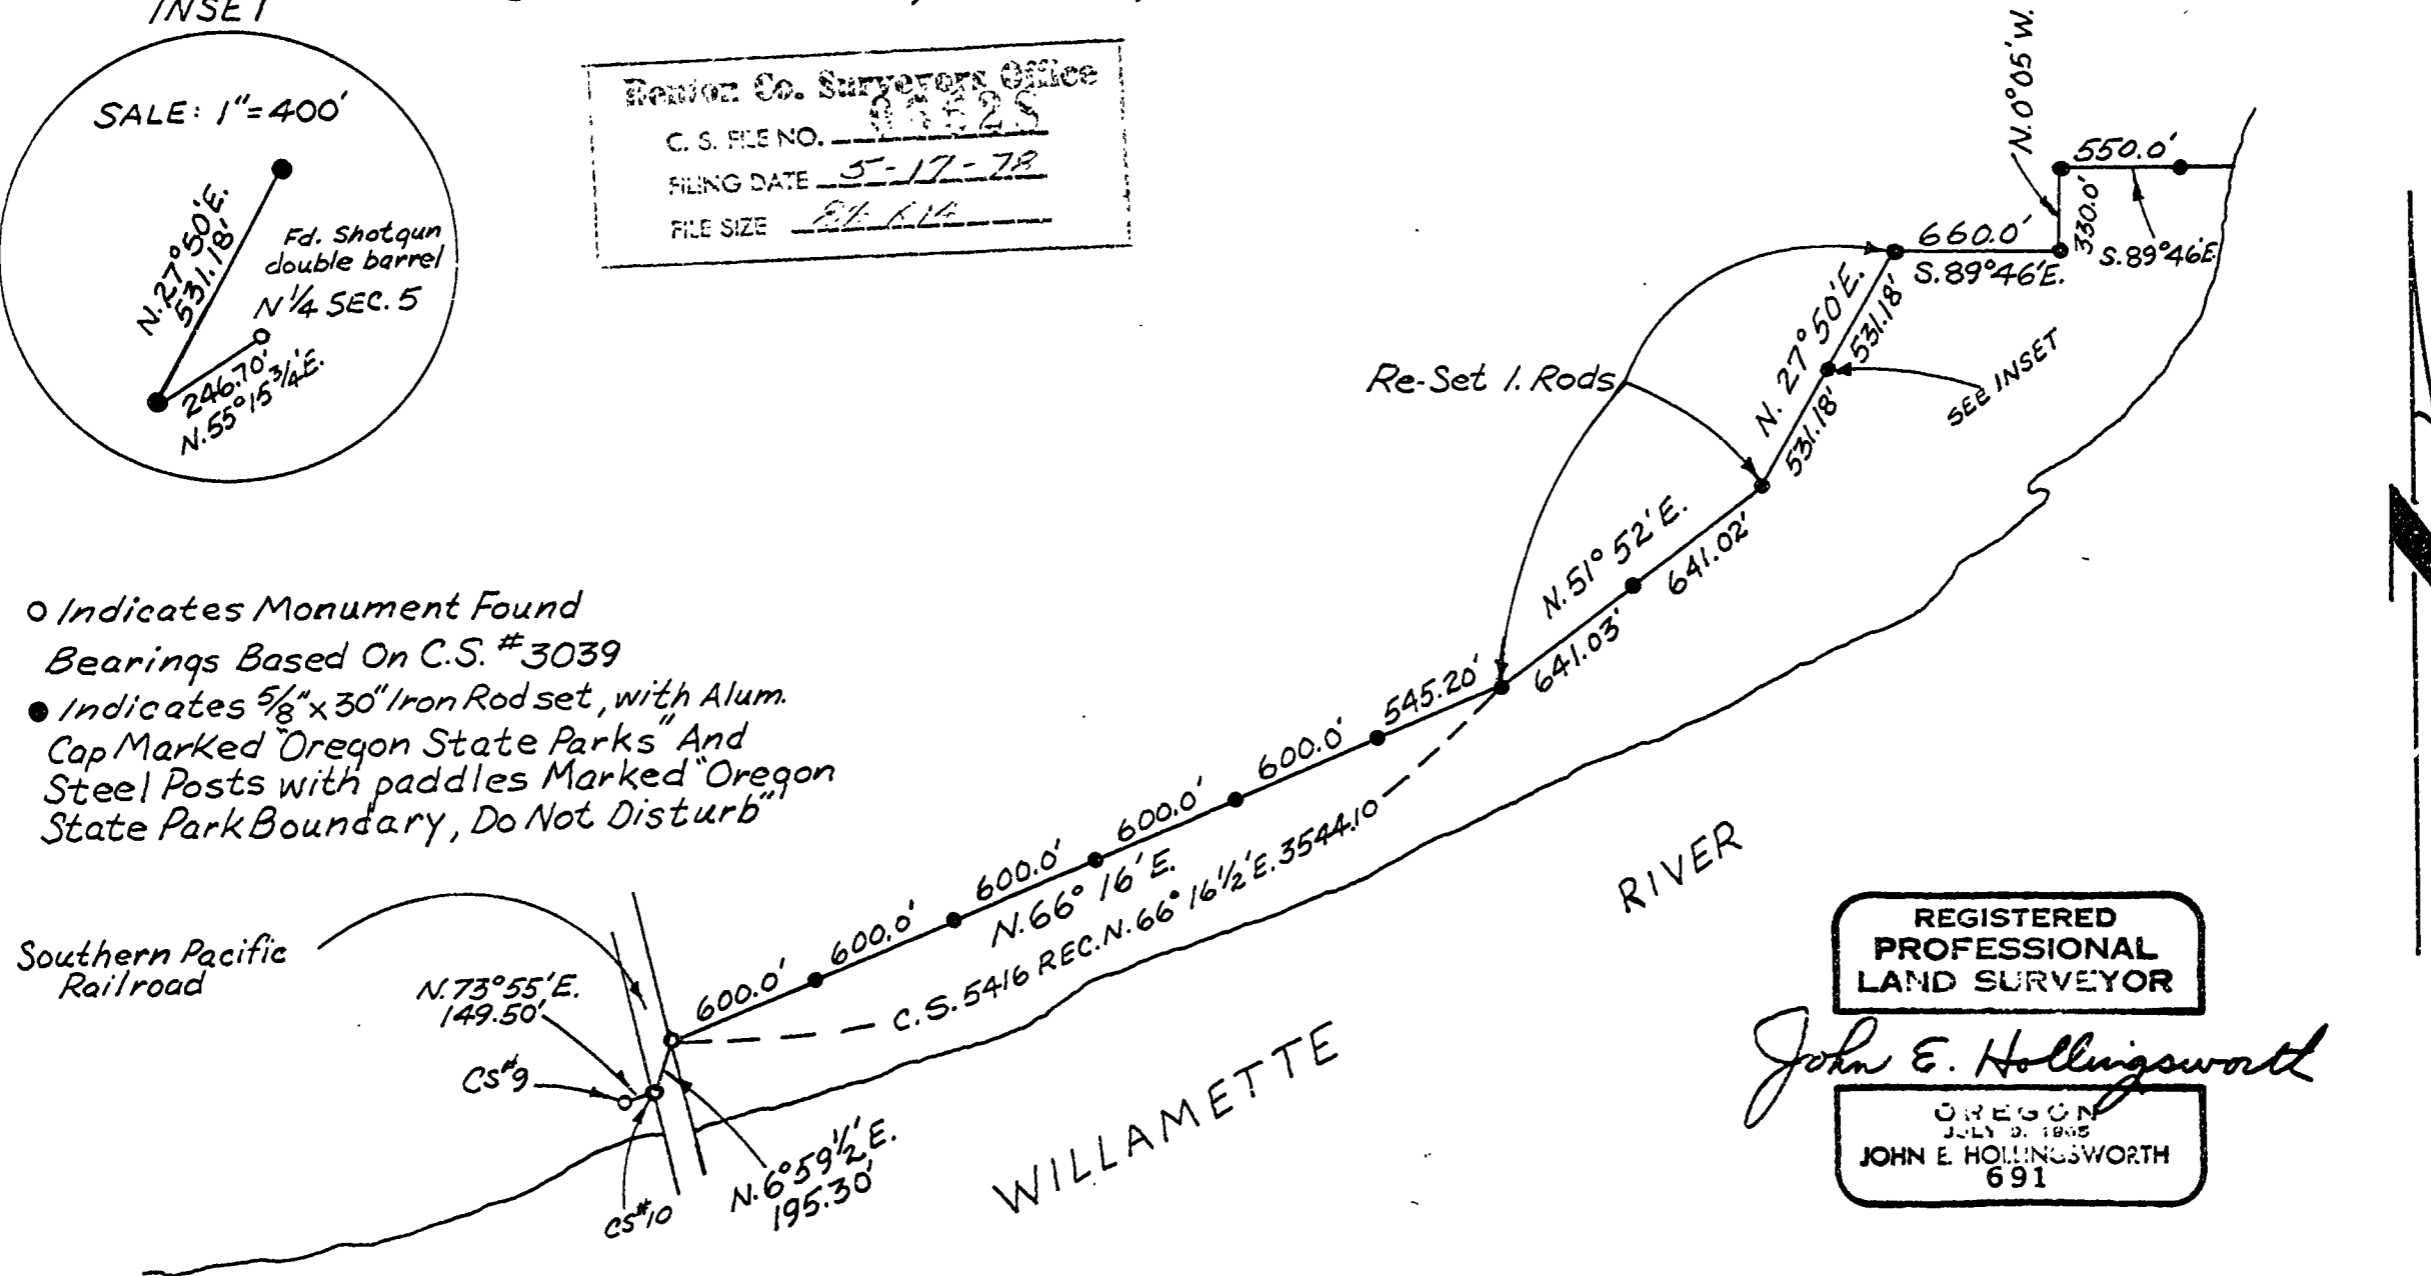 INSET
SALE: 1"=400'
N.27°50'E.
531.18'
Fd. Shotgun
double barrel
N 1/4 SEC. 5
246.70'
N.55°15 3/4'E.
Benton Co. Surveyors Office
C. S. FILE NO.
FILING DATE 5-17-78
FILE SIZE
N.0°05'W.
550.0'
330.0'
S.89°46'E.
660.0'
S.89°46'E.
N. 27°50'E.
531.18'
531.18'
SEE INSET
Re-Set I. Rods
N.51°52'E.
641.02'
641.03'
545.20'
600.0'
600.0'
600.0'
600.0'
600.0'
N.66°16'E.
C.S.5416 REC.N.66°16 1/2'E.3544.10
o Indicates Monument Found
Bearings Based On C.S.#3039
● Indicates 5/8"x30" Iron Rod set, with Alum.
Cap Marked "Oregon State Parks" And
Steel Posts with paddles Marked "Oregon
State Park Boundary, Do Not Disturb"
Southern Pacific
Railroad
N.73°55'E.
149.50'
CS#9
CS#10
N.6°59 1/2'E.
195.30'
WILLAMETTE
RIVER
REGISTERED
PROFESSIONAL
LAND SURVEYOR
John E. Hollingsworth
OREGON
JULY
JOHN E. HOLLINGSWORTH
691